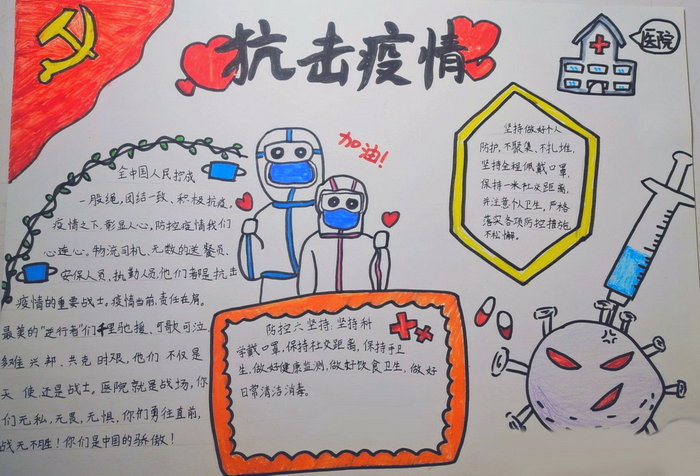 抗击疫情
医院
加油!
全中国人民拧成
一股绳,团结一致、积极抗疫,
疫情之下,彰显人心。防控疫情我们
心连心。物流司机、无数的送餐员、
安保人员、执勤人员,他们都是抗击
疫情的重要战士。疫情当前,责任在肩。
最美的“逆行者”们千里驰援、可歌可泣
多难兴邦、共克时艰,他们不仅是
天使,还是战士。医院就是战场,你
们无私,无畏,无惧,你们勇往直前,
战无不胜!你们是中国的骄傲!
坚持做好个人
防护,不聚集、不扎堆,
坚持全程佩戴口罩,
保持一米社交距离,
并注意个人卫生,严格
落实各项防控措施,
不松懈。
防控六坚持:坚持科
学戴口罩,保持社交距离,保持手卫
生,做好健康监测,做好饮食卫生,做好
日常清洁消毒。